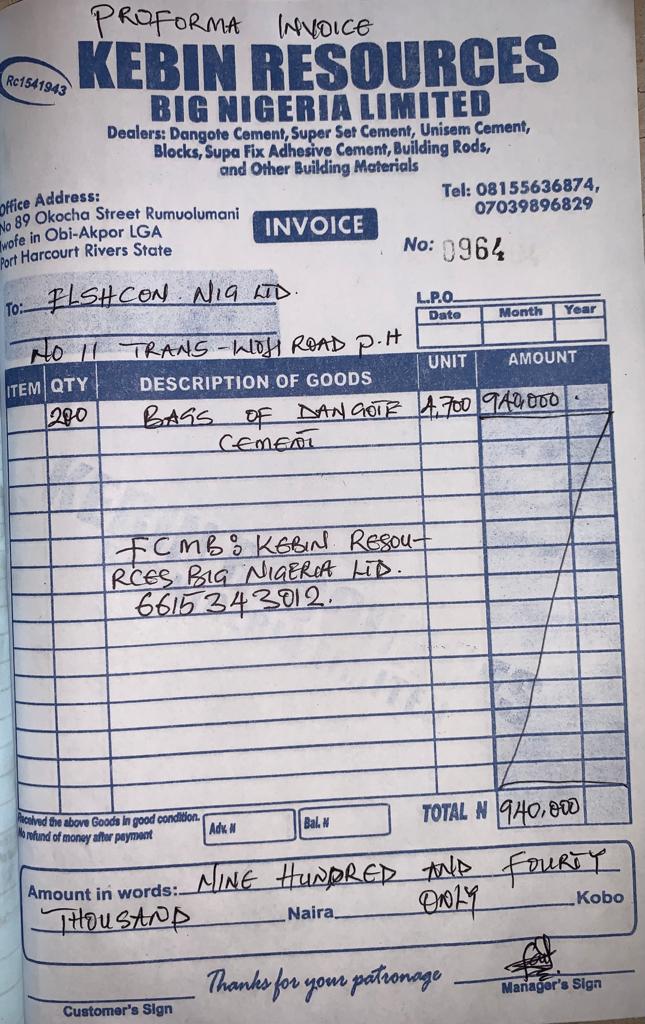 PROFORMA INVOICE
Rc1541943
KEBIN RESOURCES
BIG NIGERIA LIMITED
Dealers: Dangote Cement, Super Set Cement, Unisem Cement,
Blocks, Supa Fix Adhesive Cement, Building Rods,
and Other Building Materials
Office Address:
No 89 Okocha Street Rumuolumani
Iwofe in Obi-Akpor LGA
Port Harcourt Rivers State
INVOICE
Tel: 08155636874,
07039896829
No: 0964
To: ELSHCON NIG LTD.
NO 11 TRANS-WOJI ROAD P.H
L.P.O
Date Month Year
ITEM QTY DESCRIPTION OF GOODS UNIT AMOUNT
200 BAGS OF DANGOTE 4,700 940,000
CEMENT
FCMB: KEBIN RESOU-
RCES BIG NIGERIA LTD.
6615343012.
Received the above Goods in good condition.
No refund of money after payment
Adv. N
Bal. N
TOTAL N 940,000
Amount in words: NINE HUNDRED AND FOURTY
THOUSAND Naira ONLY Kobo
Thanks for your patronage
Customer's Sign
Manager's Sign